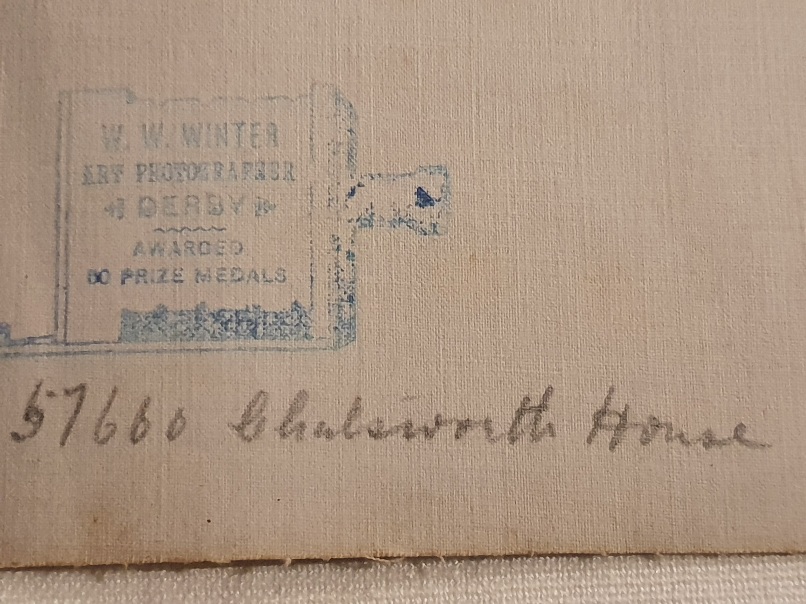 W. W. WINTER
ART PHOTOGRAPHER
DERBY
AWARDED
60 PRIZE MEDALS
57660 Chatsworth House